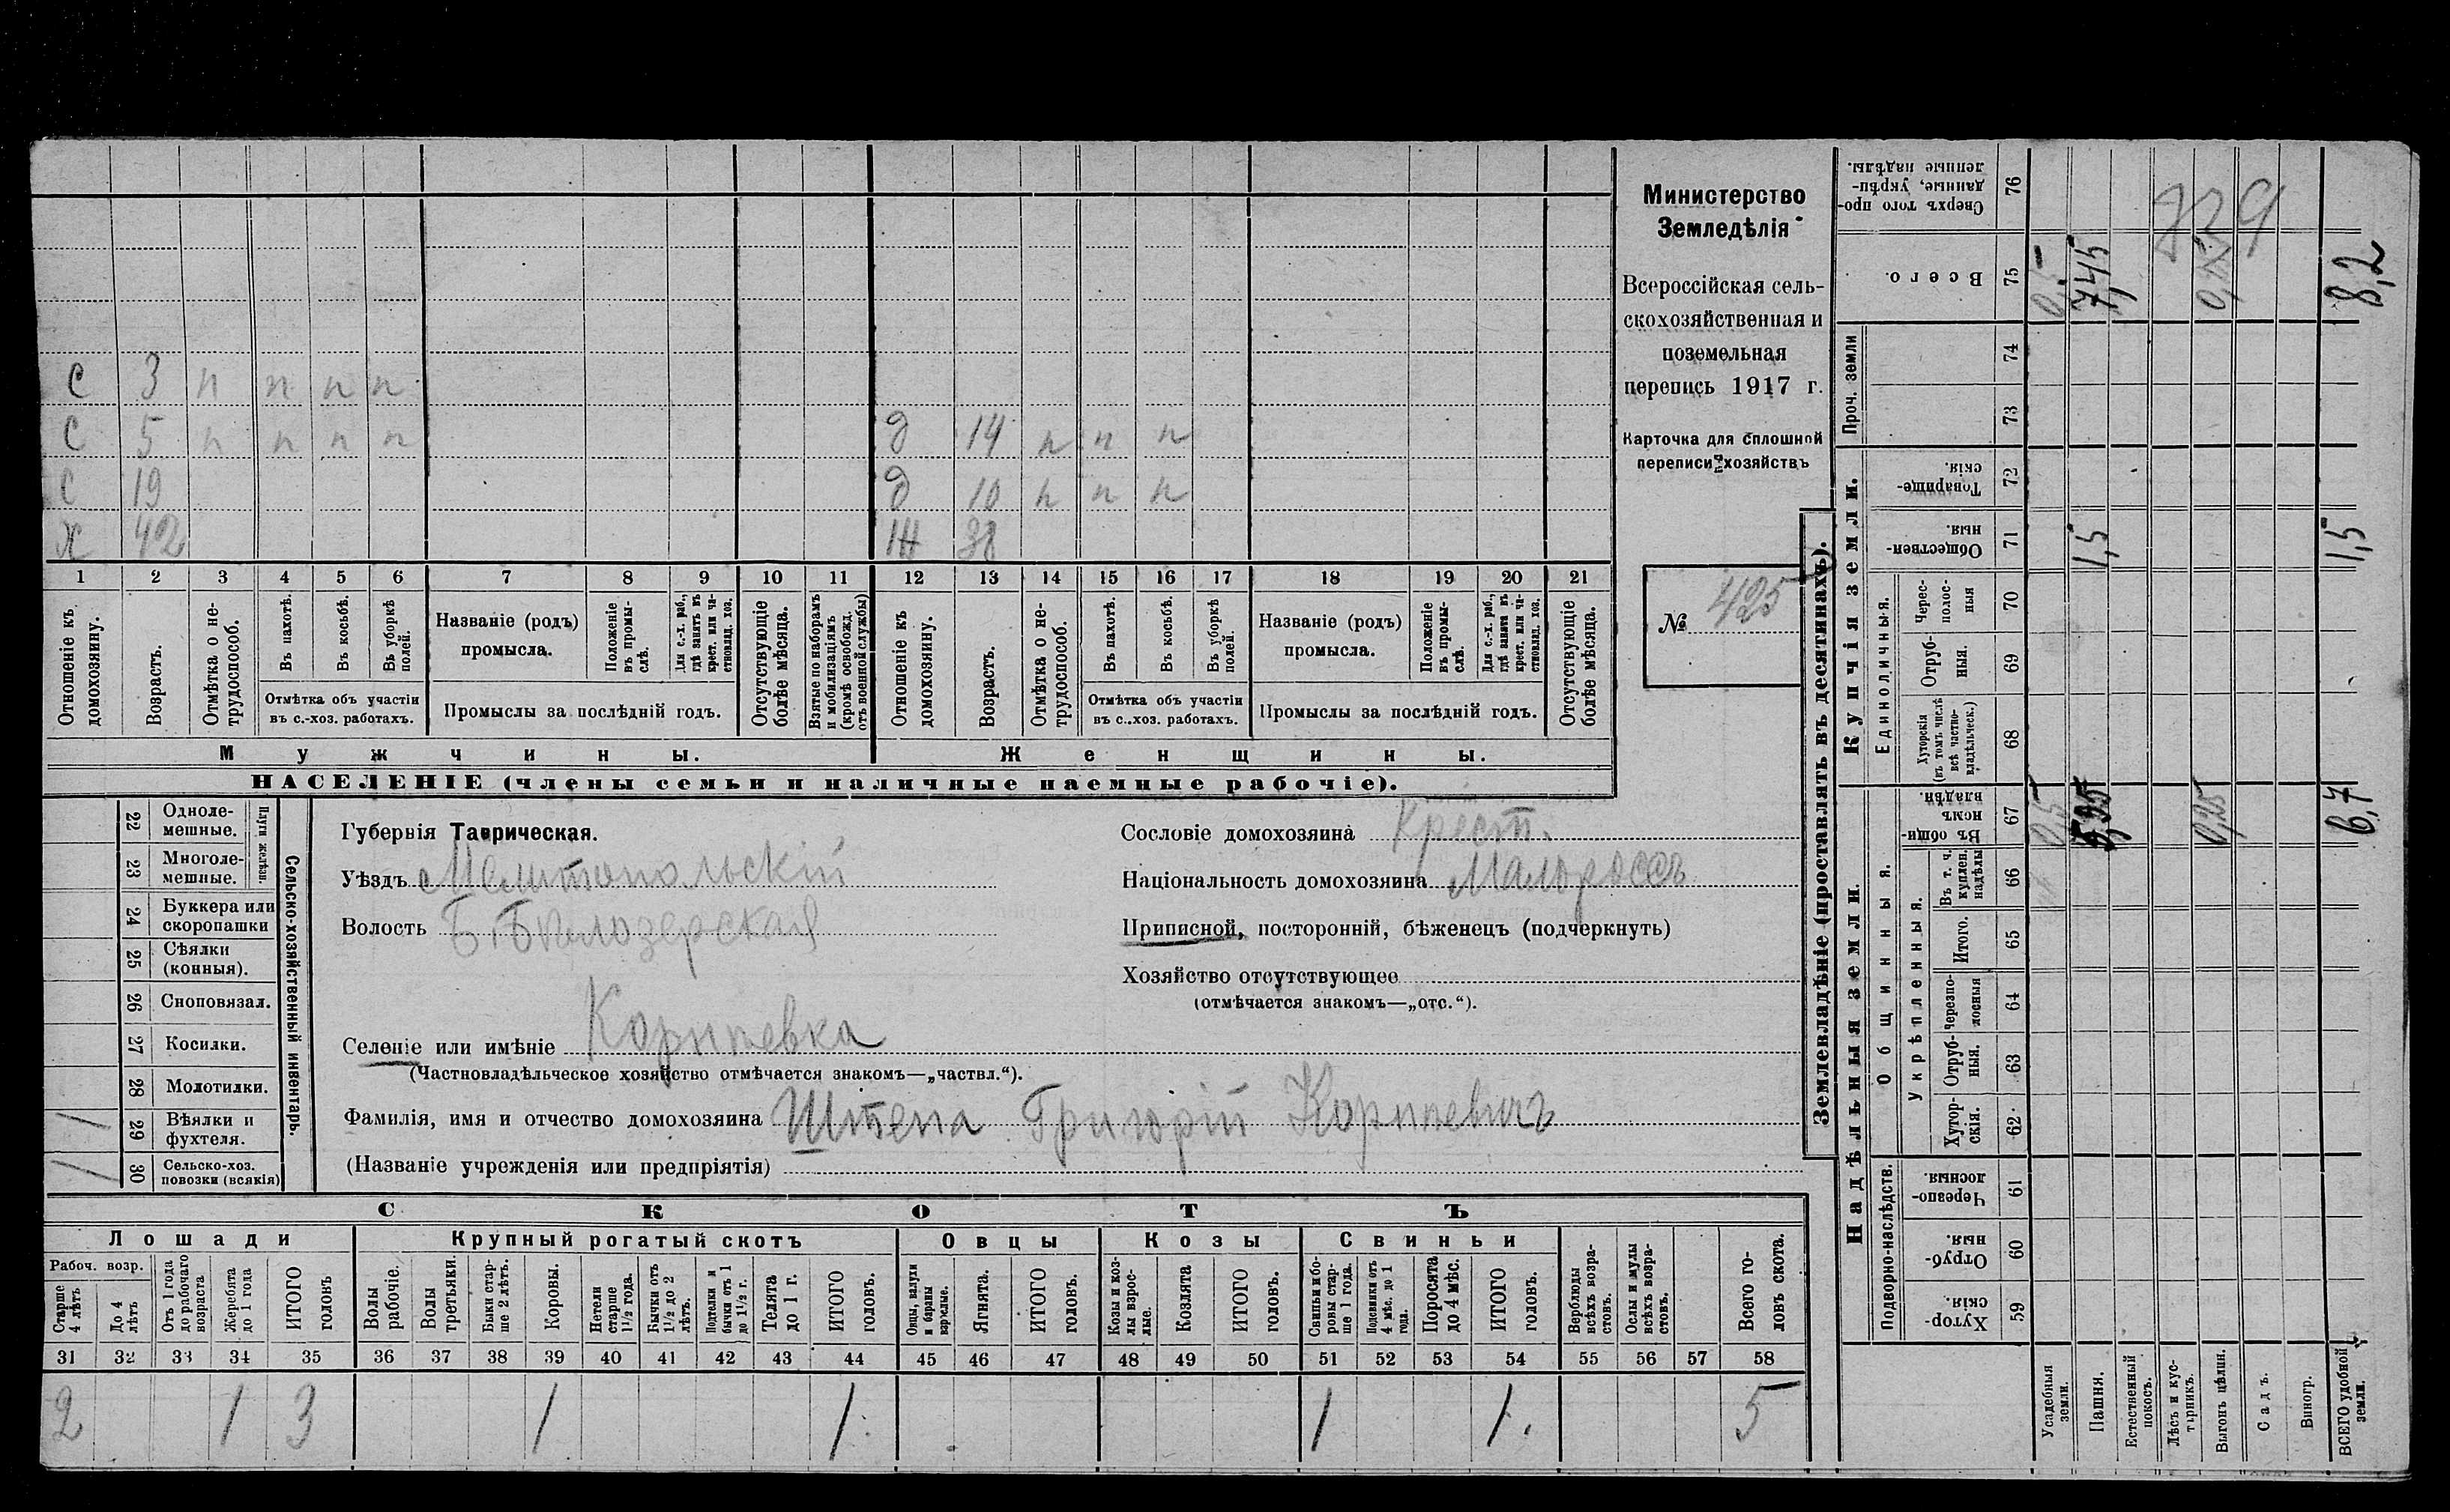 с 3 п п п п
с 5 п п п п д 14 п п п
с 19 д 10 п п п
х 42 Ж 38
1 2 3 4 5 6 7 8 9 10 11 12 13 14 15 16 17 18 19 20 21
Отношеніе къ домохозяину.
Возрастъ.
Отмѣтка о нетрудоспособ.
Въ пахотѣ.
Въ косьбѣ.
Въ уборкѣ полей.
Отмѣтка объ участіи въ с.-хоз. работахъ.
Названіе (родъ) промысла.
Положеніе въ промыслѣ.
Для с.-х. раб., гдѣ занятъ въ крест. или частновлад. хоз.
Промыслы за послѣдній годъ.
Отсутствующіе болѣе мѣсяца.
Взятые по наборамъ и мобилизаціямъ (кромѣ освобожд. отъ военной службы)
Отношеніе къ домохозяину.
Возрастъ.
Отмѣтка о нетрудоспособ.
Въ пахотѣ.
Въ косьбѣ.
Въ уборкѣ полей.
Отмѣтка объ участіи въ с.-хоз. работахъ.
Названіе (родъ) промысла.
Положеніе въ промыслѣ.
Для с.-х. раб., гдѣ занята въ крест. или частновлад. хоз.
Промыслы за послѣдній годъ.
Отсутствующіе болѣе мѣсяца.
Мужчины. Женщины.
НАСЕЛЕНІЕ (члены семьи и наличные наемные рабочіе).
Министерство
Земледѣлія
Всероссійская сель-
скохозяйственная и
поземельная
перепись 1917 г.
Карточка для сплошной
переписи хозяйствъ
№ 425
Сельско-хозяйственный инвентарь.
Плуги желѣзн.
22 Одноле-мешные.
23 Многоле-мешные.
24 Буккера или скоропашки
25 Сѣялки (конныя).
26 Сноповязал.
27 Косилки.
28 Молотилки.
1 29 Вѣялки и фухтеля.
1 30 Сельско-хоз. повозки (всякія)
Губернія Таврическая.
Уѣздъ Мелитопольскій
Волость Б. Бѣлозерская
Селеніе или имѣніе Корнѣевка
(Частновладѣльческое хозяйство отмѣчается знакомъ—„частвл.“).
Фамилія, имя и отчество домохозяина Штепа Григорій Корнѣевичъ
(Названіе учрежденія или предпріятія)
Сословіе домохозяина Крест.
Національность домохозяина Малороссъ
Приписной, посторонній, бѣженецъ (подчеркнуть)
Хозяйство отсутствующее
(отмѣчается знакомъ—„отс.“).
СКОТЪ
Лошади Крупный рогатый скотъ Овцы Козы Свиньи
Рабоч. возр.
Старше 4 лѣтъ
До 4 лѣтъ
Отъ 1 года до рабочаго возраста
Жеребята до 1 года
ИТОГО головъ
Волы рабочіе.
Волы третьяки.
Быки старше 2 лѣтъ.
Коровы.
Нетели старше 1½ года.
Бычки отъ 1½ до 2 лѣтъ.
Подтелки и бычки отъ 1 до 1½ г.
Телята до 1 г.
ИТОГО головъ.
Овцы, валухи и бараны взрослые.
Ягнята.
ИТОГО головъ.
Козы и козлы взрослые.
Козлята
ИТОГО головъ.
Свиньи и боровы старше 1 года.
Подсвинки отъ 4 мѣс. до 1 года.
Поросята до 4 мѣс.
ИТОГО головъ.
Верблюды всѣхъ возрастовъ.
Ослы и мулы всѣхъ возрастовъ.
Всего головъ скота.
31 32 33 34 35 36 37 38 39 40 41 42 43 44 45 46 47 48 49 50 51 52 53 54 55 56 57 58
2 1 3 1 1 1 1 5
Землевладѣніе (проставлять въ десятинахъ).
Надѣльныя земли. Купчія земли. Проч. земли
Подворно-наслѣдств. Общинныя. Укрѣпленныя. Единоличныя.
Сверхъ того проданные, укрѣпленные надѣлы. 76
Всего. 75 0,5 7,45 0,25 8,2
739
74
73
Товарищескія. 72
Общественныя. 71 1,5 1,5
Чересполосныя 70
Отрубныя. 69
Хуторскія (въ томъ числѣ всѣ частновладѣльческ.) 68
Въ общинномъ владѣн. 67 0,5 5,95 0,25 6,7
Въ т. ч. куплен. надѣлы 66
Итого. 65
Черезполосныя 64
Отрубныя. 63
Хуторскія. 62
Черезполосныя 61
Отрубныя. 60
Хуторскія. 59
Усадебныя земли.
Пашня.
Естественный покосъ.
Лѣсъ и кустарникъ.
Выгонъ цѣлин.
Садъ.
Виногр.
ВСЕГО удобной земли.